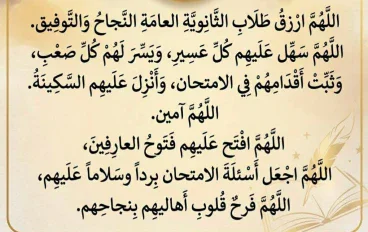 اللَّهُمَّ ارْزقُ طَلَابِ الثَّانِويَّةِ العامَةِ النَّجاحُ وَالتَّوفِيق.
اللَّهُمَّ سَهِّل عَلَيهِم كُلَّ عَسِيرٍ، وَيَسِّرَ لَهُمْ كُلِّ صَعْبٍ،
وَثَبِّتْ أَقْدَامِهُمْ فِي الامتحان، وَأَنْزِلَ عَلَيهِم السَّكِينَةُ.
اللَّهُمَّ آمين.
اللَّهُمَّ افْتَح عَلَيهِم فَتَوحُ العارِفِينَ،
اللَّهُمَّ اجْعَل أَسْئلَةَ الامتحان بِرداً وسَلاماً عَلَيهِم،
اللَّهُمَّ فَرحُ قُلوبِ أَهاليهِم بِنجاحِهم.